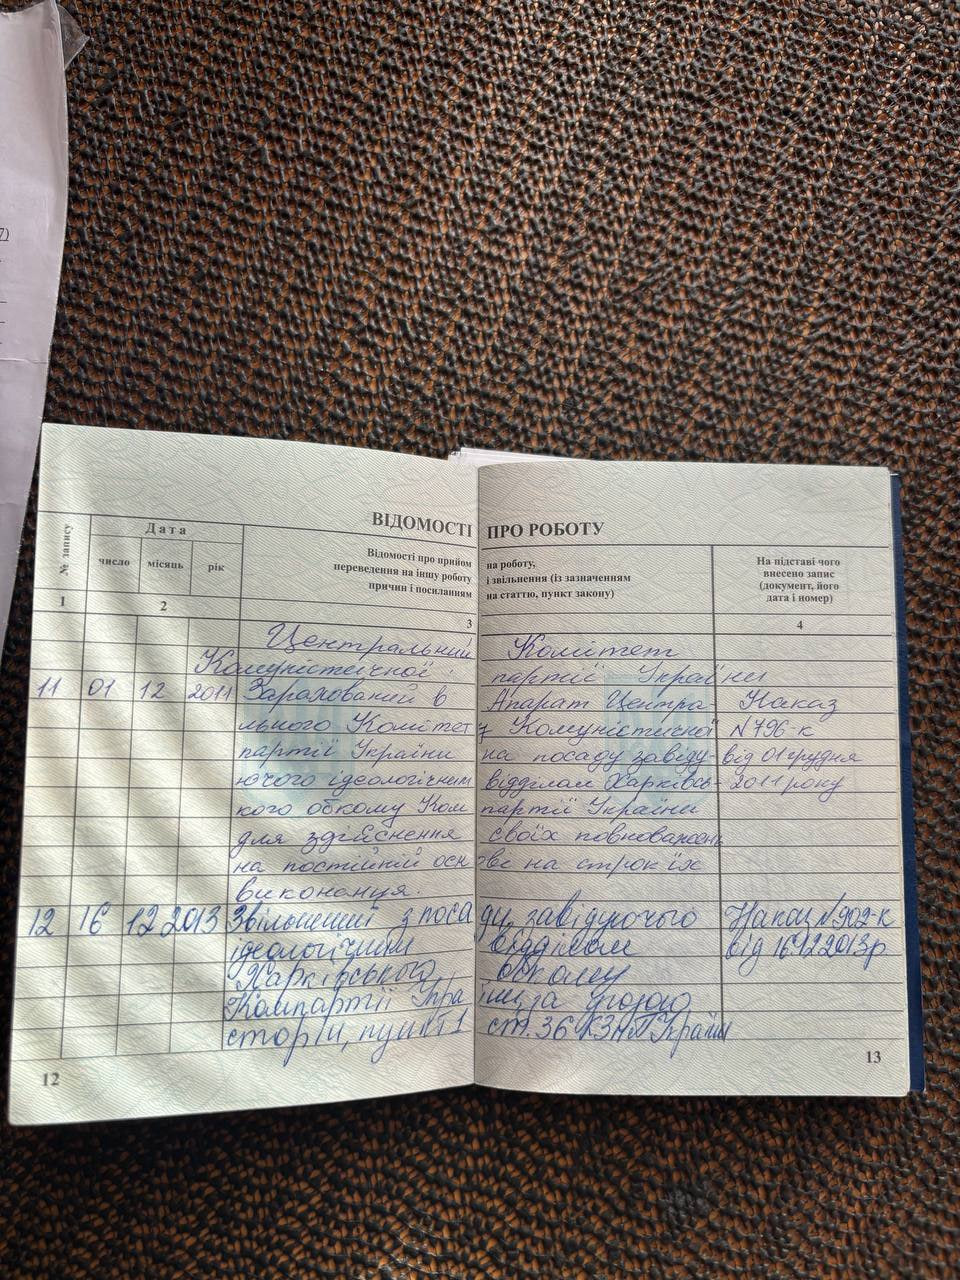 7)
ВІДОМОСТІ ПРО РОБОТУ
№ запису
Дата
число місяць рік
Відомості про прийом на роботу,
переведення на іншу роботу і звільнення (із зазначенням
причин і посиланням на статтю, пункт закону)
На підставі чого
внесено запис
(документ, його
дата і номер)
1 2 3 4
Центральний Комітет
Комуністичної партії України
11 01 12 2011 Зарахований в Апарат Центра- Наказ
льного Комітет у Комуністичної N796-к
партії України на посаду завіду- від 01 грудня
ючого ідеологічним відділом Харківсь- 2011 року
кого обкому Ком партії України
для здійснення своїх повноважень
на постійній осн ове на строк їх
виконання.
12 16 12 2013 Звільнений з поса ди завідуючого Наказ N902-к
ідеологічним відділом від 16.12.2013р.
Харківського обкому
Компартії Укра їни, за угодою
сторін, пункт 1 ст. 36 КЗпП України
12
13